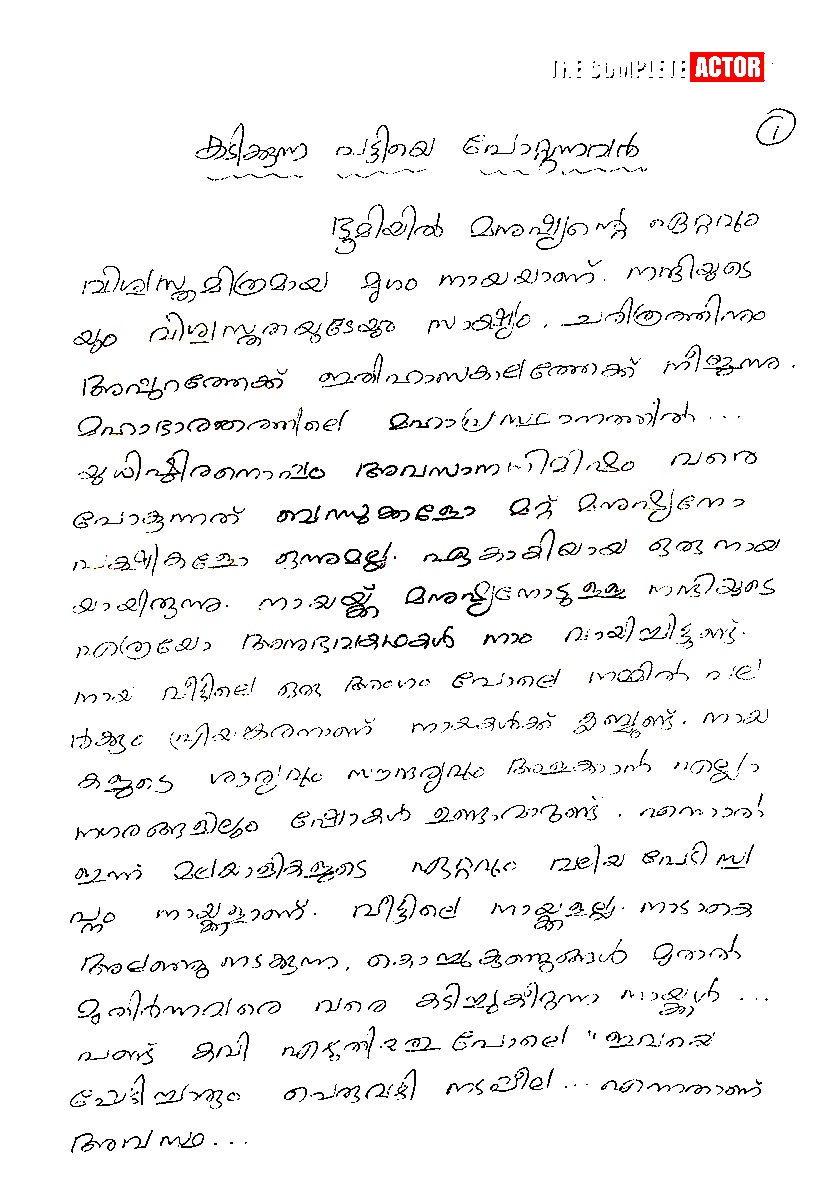 THE COMPLETE ACTOR
1
കടിക്കുന്ന പട്ടിയെ പോറ്റുന്നവർ
ഭൂമിയിൽ മനുഷ്യന്റെ ഏറ്റവും
വിശ്വസ്തമിത്രമായ മൃഗം നായയാണ്. നന്ദിയുടെ
യും വിശ്വസ്തതയുടേയും സാക്ഷ്യം. ചരിത്രത്തിനും
അപ്പുറത്തേക്ക് ഇതിഹാസകാലത്തേക്ക് നീളുന്നു.
മഹാഭാരതത്തിലെ മഹാപ്രസ്ഥാനത്തിൽ...
യുധിഷ്ഠിരനൊപ്പം അവസാനനിമിഷം വരെ
പോകുന്നത് ബന്ധുക്കളോ മറ്റ് മനുഷ്യനോ
പക്ഷികളോ ഒന്നുമല്ല. ഏകാകിയായ ഒരു നായ
യായിരുന്നു. നായയ്ക്ക് മനുഷ്യനോടുള്ള നന്ദിയുടെ
എത്രയോ അനുഭവകഥകൾ നാം വായിച്ചിട്ടുണ്ട്.
നായ വീട്ടിലെ ഒരു അംഗം പോലെ നമ്മിൽ പല
ർക്കും പ്രിയങ്കരനാണ് നായകൾക്ക് ക്ലബ്ബുണ്ട്. നായ
കളുടെ ശൗര്യവും സൗന്ദര്യവും അളക്കാൻ എല്ലാ
നഗരങ്ങളിലും ഷോകൾ ഉണ്ടാവാറുണ്ട്. എന്നാൽ
ഇന്ന് മലയാളികളുടെ ഏറ്റവും വലിയ പേടിസ്വ
പ്നം നായ്ക്കളാണ്. വീട്ടിലെ നായ്ക്കളല്ല. നാടാകെ
അലഞ്ഞു നടക്കുന്ന, കൊച്ചുകുഞ്ഞുങ്ങൾ മുതൽ
മുതിർന്നവരെ വരെ കടിച്ചുകീറുന്ന നായ്ക്കൾ...
പണ്ട് കവി എഴുതിയത് പോലെ "ഇവറ്റയെ
പേടിച്ചാരും പെരുവഴി നടപ്പീല... എന്നതാണ്
അവസ്ഥ...